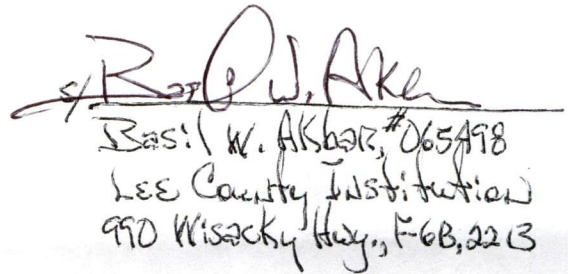 s/ Basil W. Akbar
Basil W. Akbar, #065498
LEE County Institution
990 Wisacky Hwy., F-6B, 2213